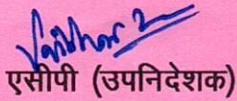 एसीपी (उपनिदेशक)